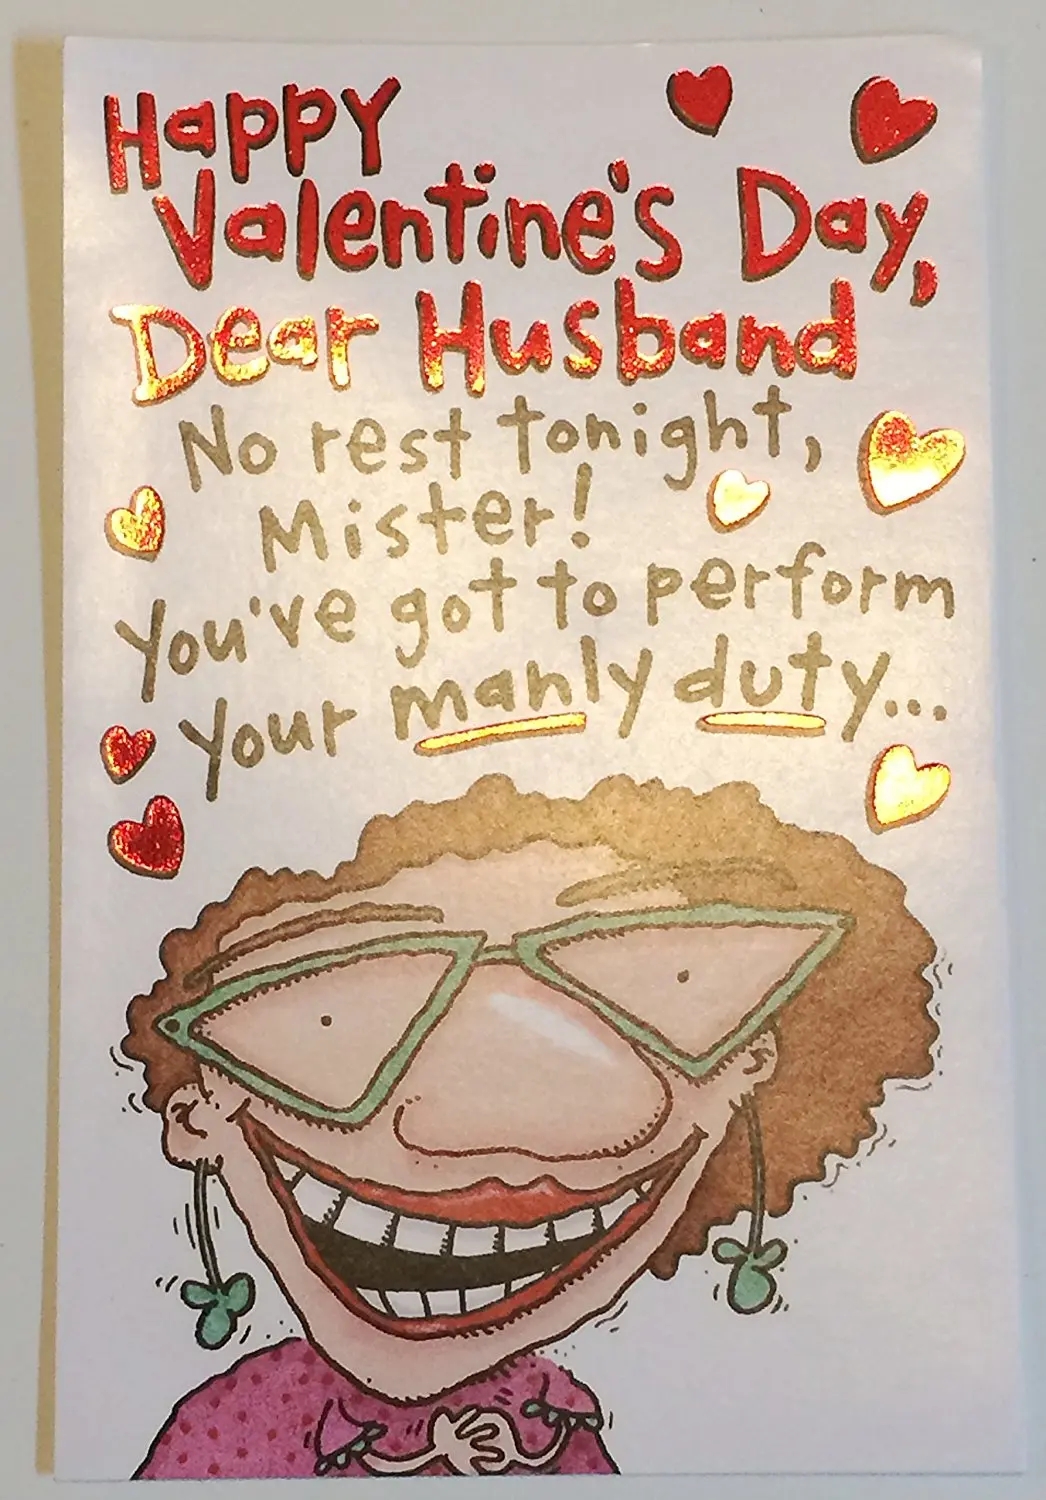 Happy
Valentine's Day,
Dear Husband
No rest tonight,
Mister!
You've got to perform
your manly duty...